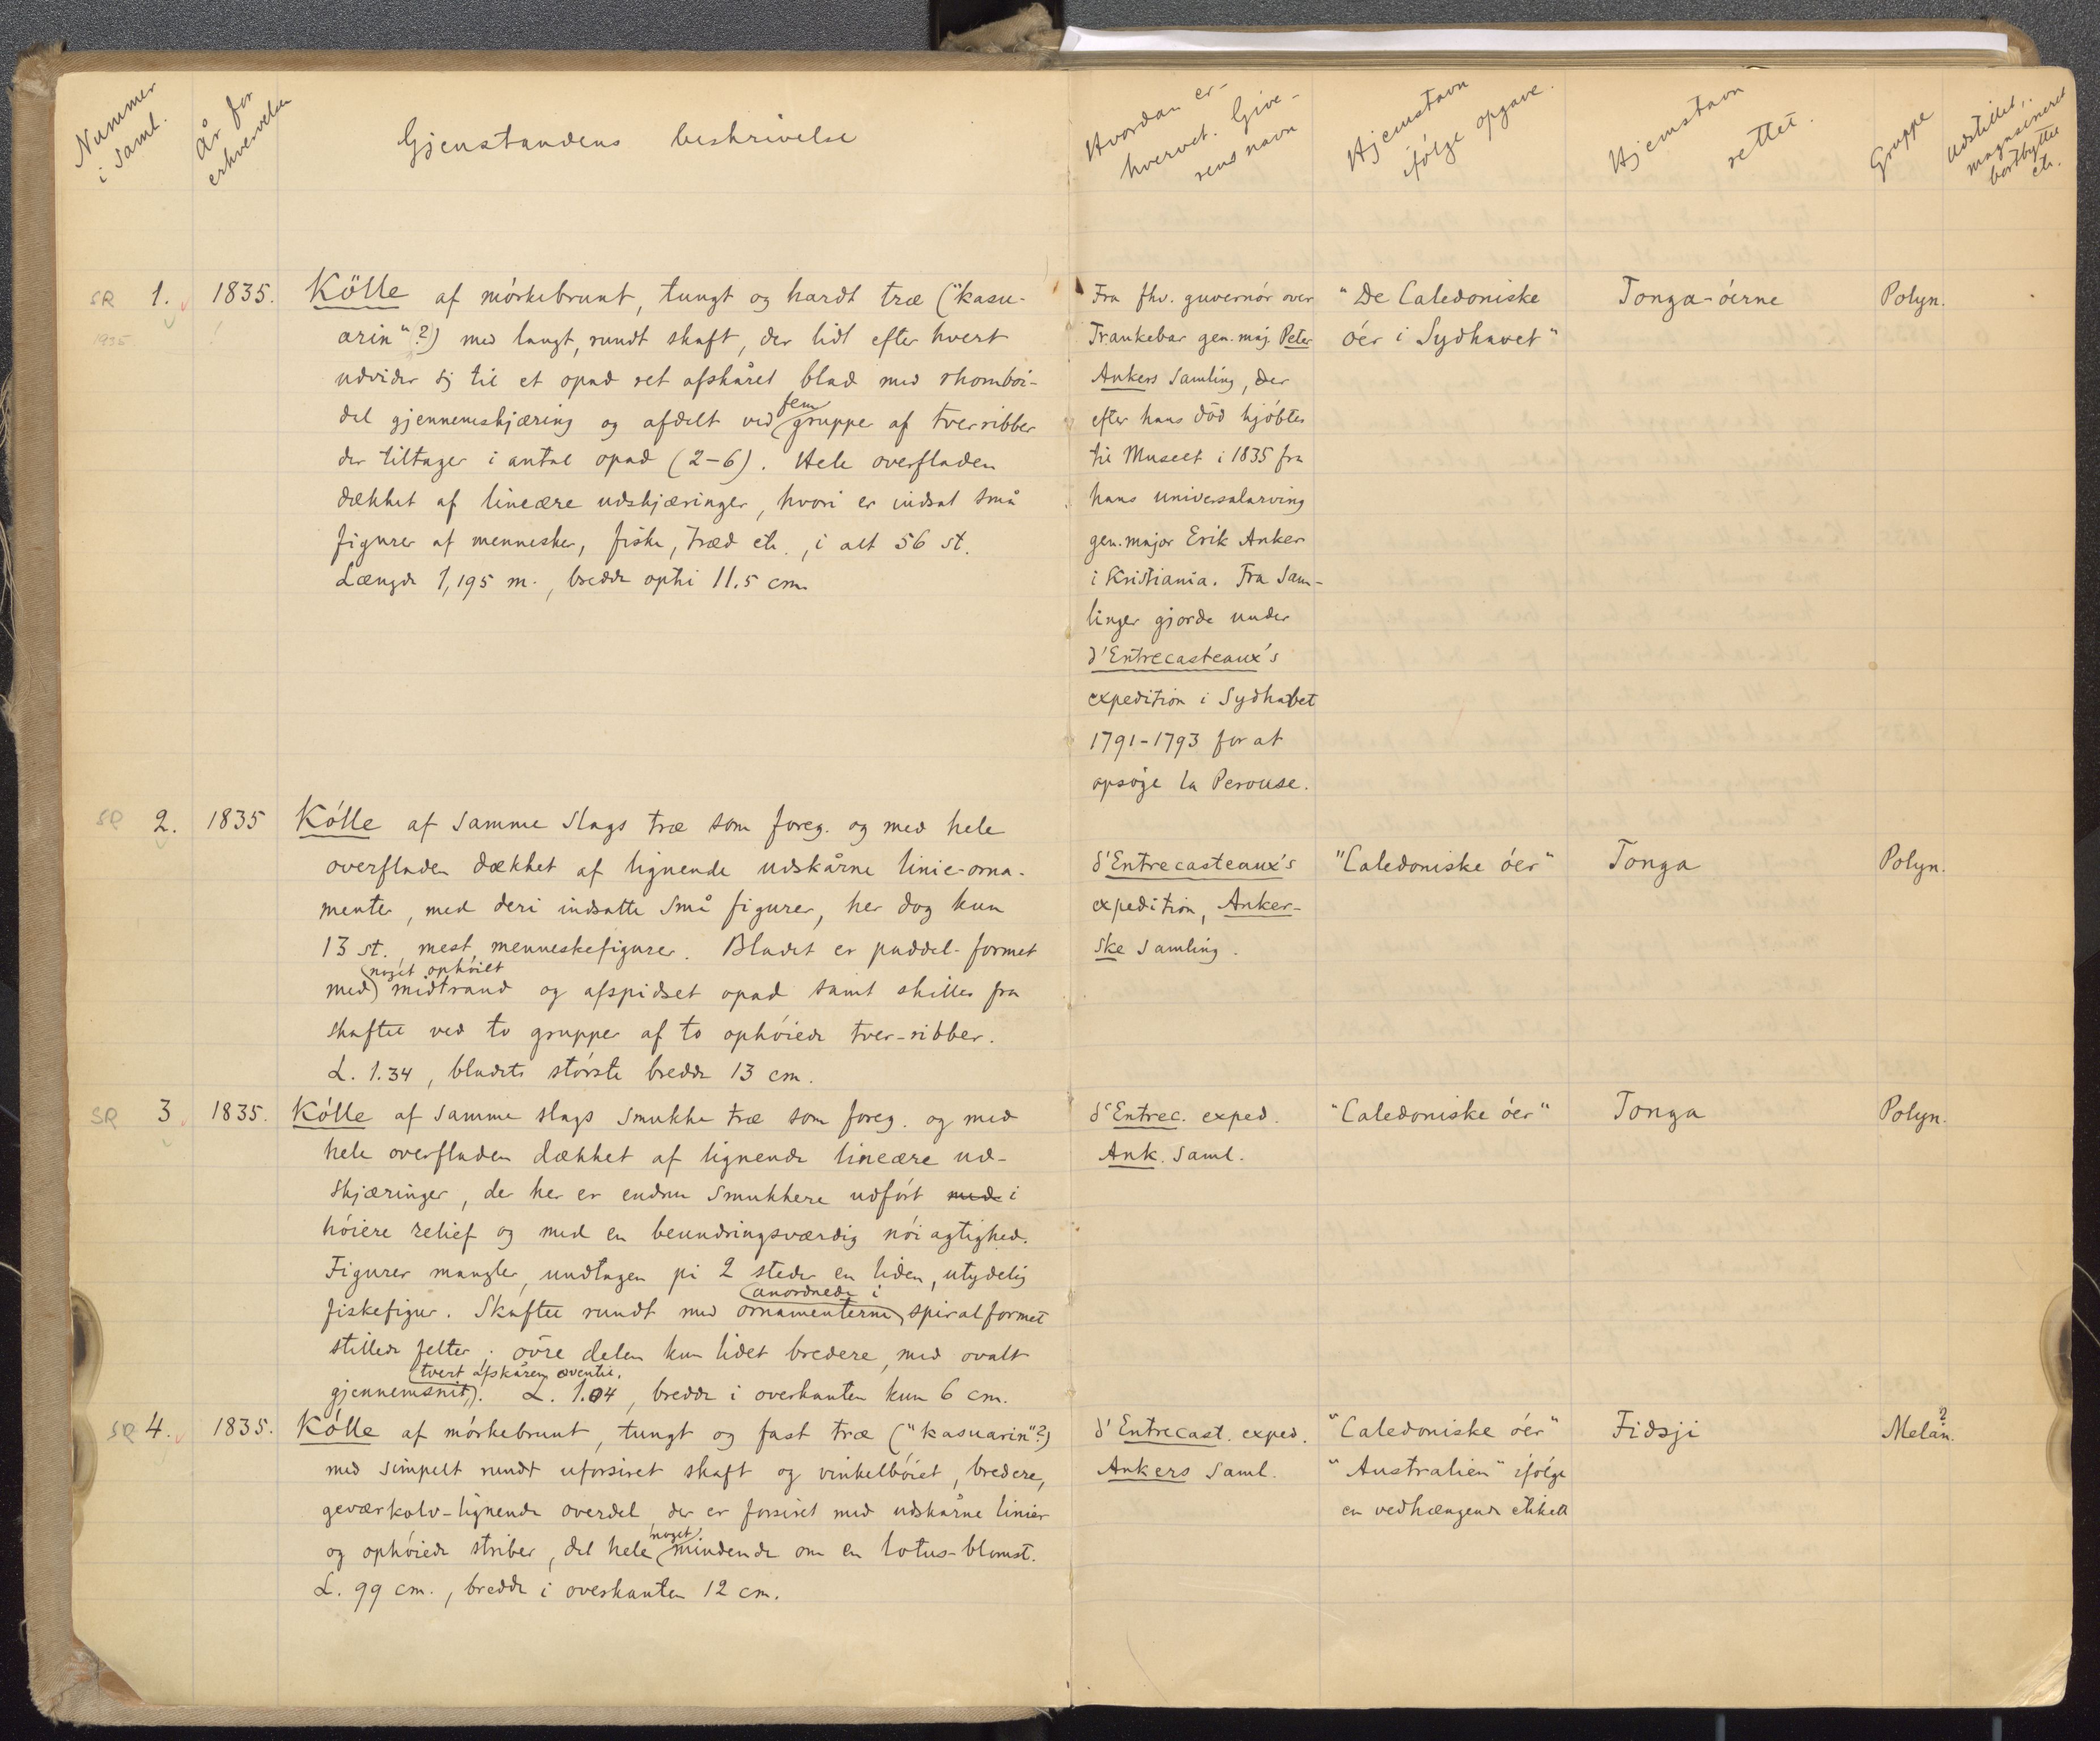 Nummer
i saml.
År for
erhvervelsen
Gjenstandens beskrivelse
Hvordan er-
hvervet. Give-
rens navn
Hjemstavn
ifølge opgave.
Hjemstavn
rettet.
Gruppe
Udstillet,
magasineret
bortbyttet
etc.
SR 1. 1835. Kölle af mörkebrunt, tungt og hardt træ ("kasu-
1935 !
arin"?) med langt, rundt skaft, der lidt efter hvert
udvider sj til et opad ret afskåret blad med rhomboi-
dal gjennemskjæring og afdelt ved fem gruppe af tverribber
der tiltager i antal opad (2-6). Hele overfladen
dækket af lineære udskjæringer, hvori er indsat små
figurer af mennesker, fiske, træd etc., i alt 56 st.
Længde 1,195 m., bredde opti 11.5 cm.
Fra fhv. guvernör over
Trankebar gen. maj. Peter
Ankers samling, der
efter hans död kjöbtes
til Museet i 1835 fra
hans universalarving
gen. major Erik Anker
i Kristiania. Fra sam-
linger gjorde under
d'Entrecasteaux's
expedition i Sydhavet
1791-1793 for at
opsöge la Perouse.
"De Caledoniske
öer i Sydhavet"
Tonga-öerne
Polyn.
SR 2. 1835 Kölle af samme slags træ som foreg. og med hele
overfladen dækket af lignende udskårne linie-orna-
menter, med deri indsatte små figurer, her dog kun
13 st., mest menneskefigurer. Bladet er paddel-formet
med noget ophöiet midtrand og afspidset opad samt skilles fra
skaftet ved to grupper af to ophöiede tver-ribber.
L. 1.34, bladets störste bredde 13 cm.
d'Entrecasteaux's
expedition, Anker-
ske samling.
"Caledoniske öer"
Tonga
Polyn.
SR 3 1835. Kölle af samme slags smukke træ som foreg. og med
hele overfladen dækket af lignende lineære ud-
skjæringer, der her er endnu smukkere udfört med i
höiere relief og med en beundringsværdig nöiagtighed.
Figurer mangler, undtagen på 2 steder en liden, utydelig
fiskefigur. Skaftet rundt med ornamenterne anordnede i spiralformet
stillede felter; övre delen kun lidet bredere, med ovalt
gjennemsnit, tvert afskåren oventil. L. 1.04, bredde i overkanten kun 6 cm.
d'Entrec. exped.
Ank. saml.
"Caledoniske öer"
Tonga
Polyn.
SR 4. 1835. Kölle af mörkebrunt, tungt og fast træ ("kasuarin"?)
med simpelt rundt uforsiret skaft og vinkelböiet, bredere,
geværkolv-lignende overdel, der er forsiret med udskårne linier
og ophöiede striber, det hele noget mindende om en lotus-blomst.
L. 99 cm., bredde i overkanten 12 cm.
d'Entrecast. exped.
Ankers saml.
"Caledoniske öer"
"Australien" ifölge
en vedhængende etiket
Fidsji
Melan. ?